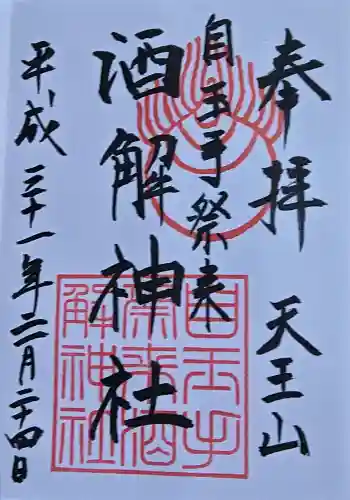 奉拝 天王山
自玉手祭来
酒解神社
平成三十一年二月二十四日
自玉手
祭来酒
解神社